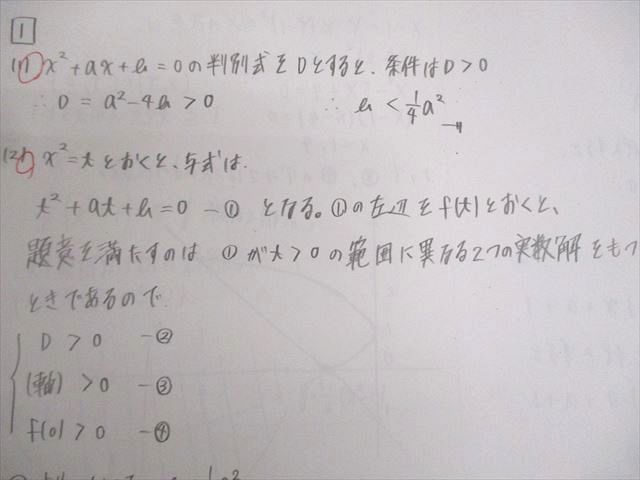 1
(1) x²+ax+b=0の判別式をDとすると、条件はD>0
∴ D = a²-4b > 0 ∴ b < 1/4 a²
(2) x²=tとおくと、与式は、
t²+at+b=0 -① となる。①の左辺をf(t)とおくと、
題意を満たすのは ①がt>0の範囲に異なる2つの実数解をもつ
ときであるので
D > 0 -②
(軸) > 0 -③
f(0) > 0 -④